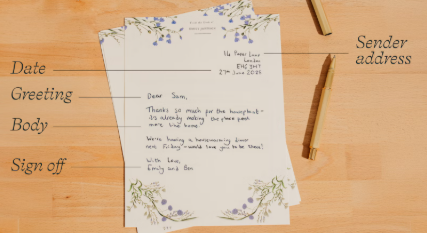 Sender
address
Date
Greeting
Body
Sign off
16 Paper Lane
London
27th June 2025
Dear Sam,
Thanks so much for the honeypot -
it's already making the place feel
more like home.
We're having a housewarming dinner
next Friday - would love you to be there!
With Love,
Emily and Ben